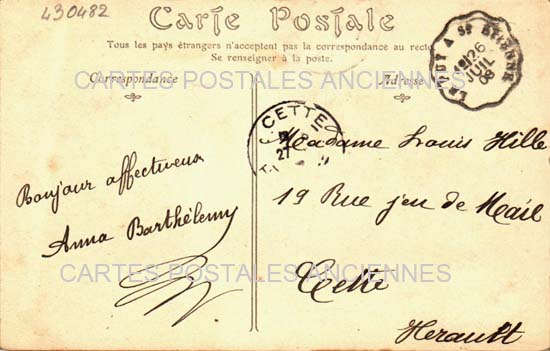 430482
Carte Postale
Tous les pays étrangers n'acceptent pas la correspondance au recto
Se renseigner à la poste.
Correspondance
Adresse
CARTES POSTALES ANCIENNES
LE PUY A St ETIENNE
26
JUIL
08
CETTE
27
Bonjour affectueux
Anna Barthélemy
Madame Louis Hille
19 Rue jeu de Mail
Cette
Herault
CARTES POSTALES ANCIENNES